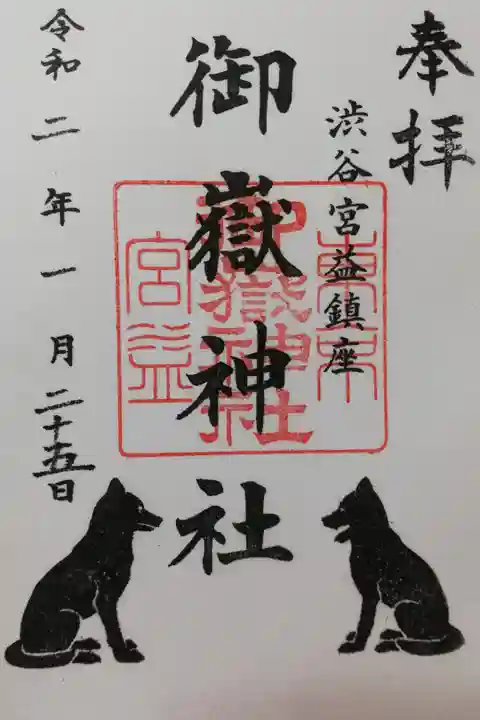 奉拝
渋谷宮益鎮座
御嶽神社
東京
御嶽神社
宮益
令和二年一月二十五日